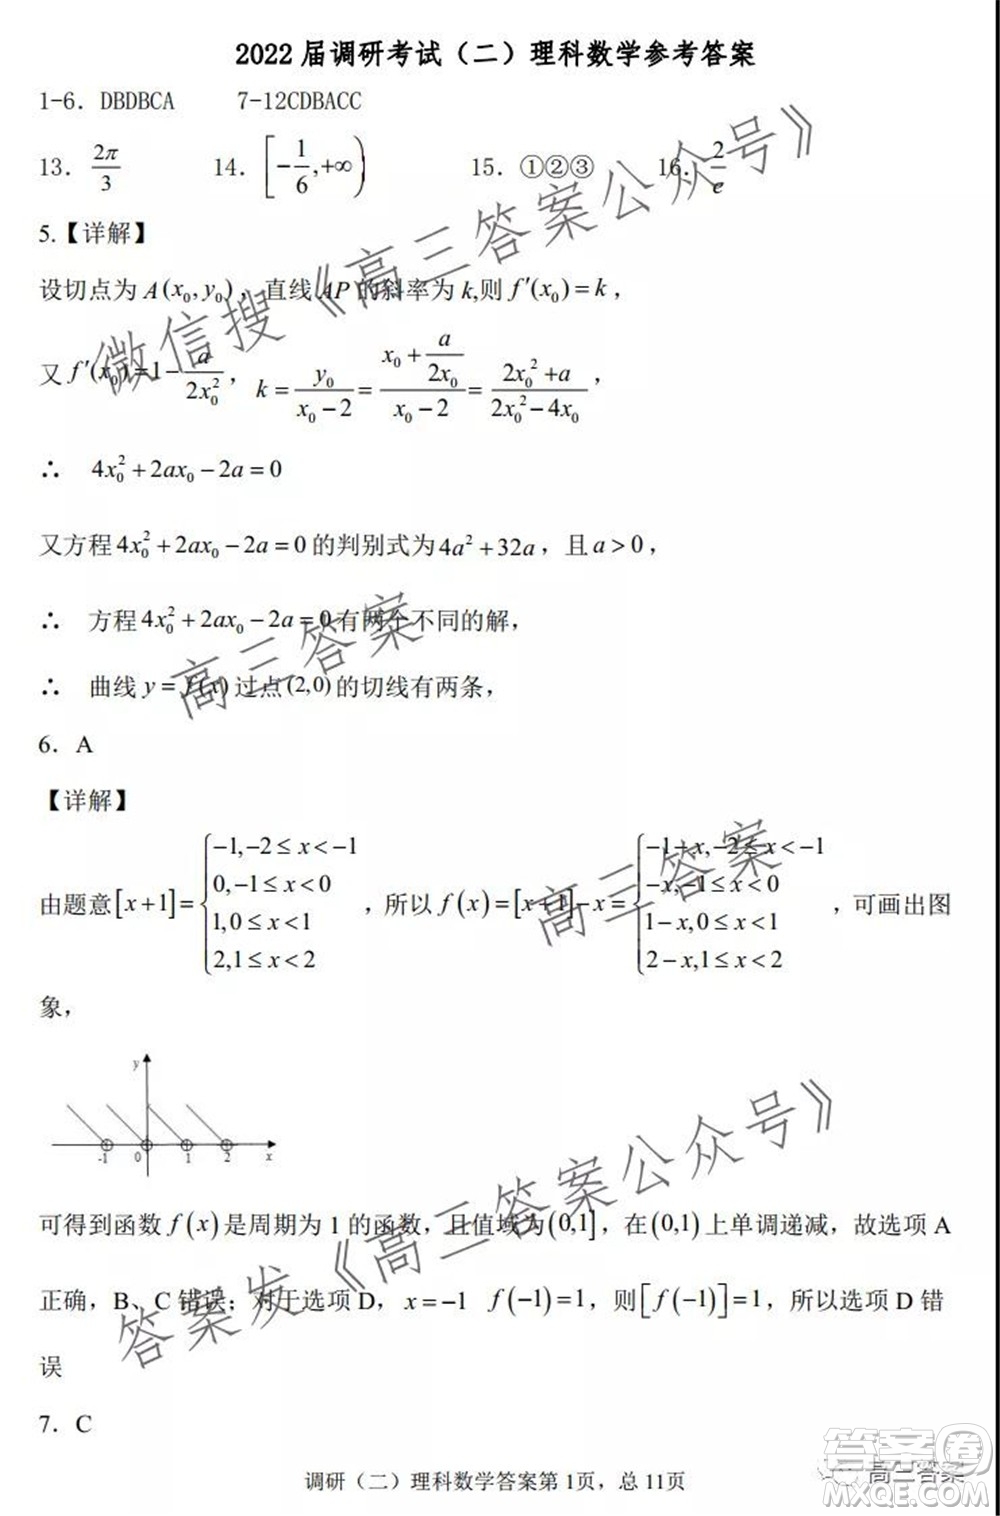 2022届调研考试（二）理科数学参考答案
1-6．DBDBCA　　7-12CDBACC
13．2π/3　　14．[-1/6,+∞)　　15．①②③　　16．2/e
5.【详解】
设切点为 A(x₀,y₀)，直线 AP 的斜率为 k,则 f′(x₀)=k，
又 f′(x₀)=1-a/(2x₀²)，k=y₀/(x₀-2)=(x₀+a/(2x₀))/(x₀-2)=(2x₀²+a)/(2x₀²-4x₀)，
∴ 4x₀²+2ax₀-2a=0
又方程4x₀²+2ax₀-2a=0的判别式为4a²+32a，且a>0，
∴ 方程4x₀²+2ax₀-2a=0有两个不同的解,
∴ 曲线 y=f(x)过点(2,0)的切线有两条，
6．A
【详解】
由题意[x+1]={-1,-2≤x<-1
0,-1≤x<0
1,0≤x<1
2,1≤x<2
，所以 f(x)=[x+1]-x={-1-x,-2≤x<-1
-x,-1≤x<0
1-x,0≤x<1
2-x,1≤x<2
，可画出图
象，
y
-1 0 1 2 x
可得到函数 f(x)是周期为 1 的函数，且值域为(0,1]，在(0,1)上单调递减，故选项 A
正确，B、C 错误；对于选项 D，x=-1 f(-1)=1，则[f(-1)]=1，所以选项 D 错
误
7．C
调研（二）理科数学答案第 1页，总 11页
微信搜《高三答案公众号》
高三答案
高三答案
答案发《高三答案公众号》
高三答案
答案圈
MXQE.COM